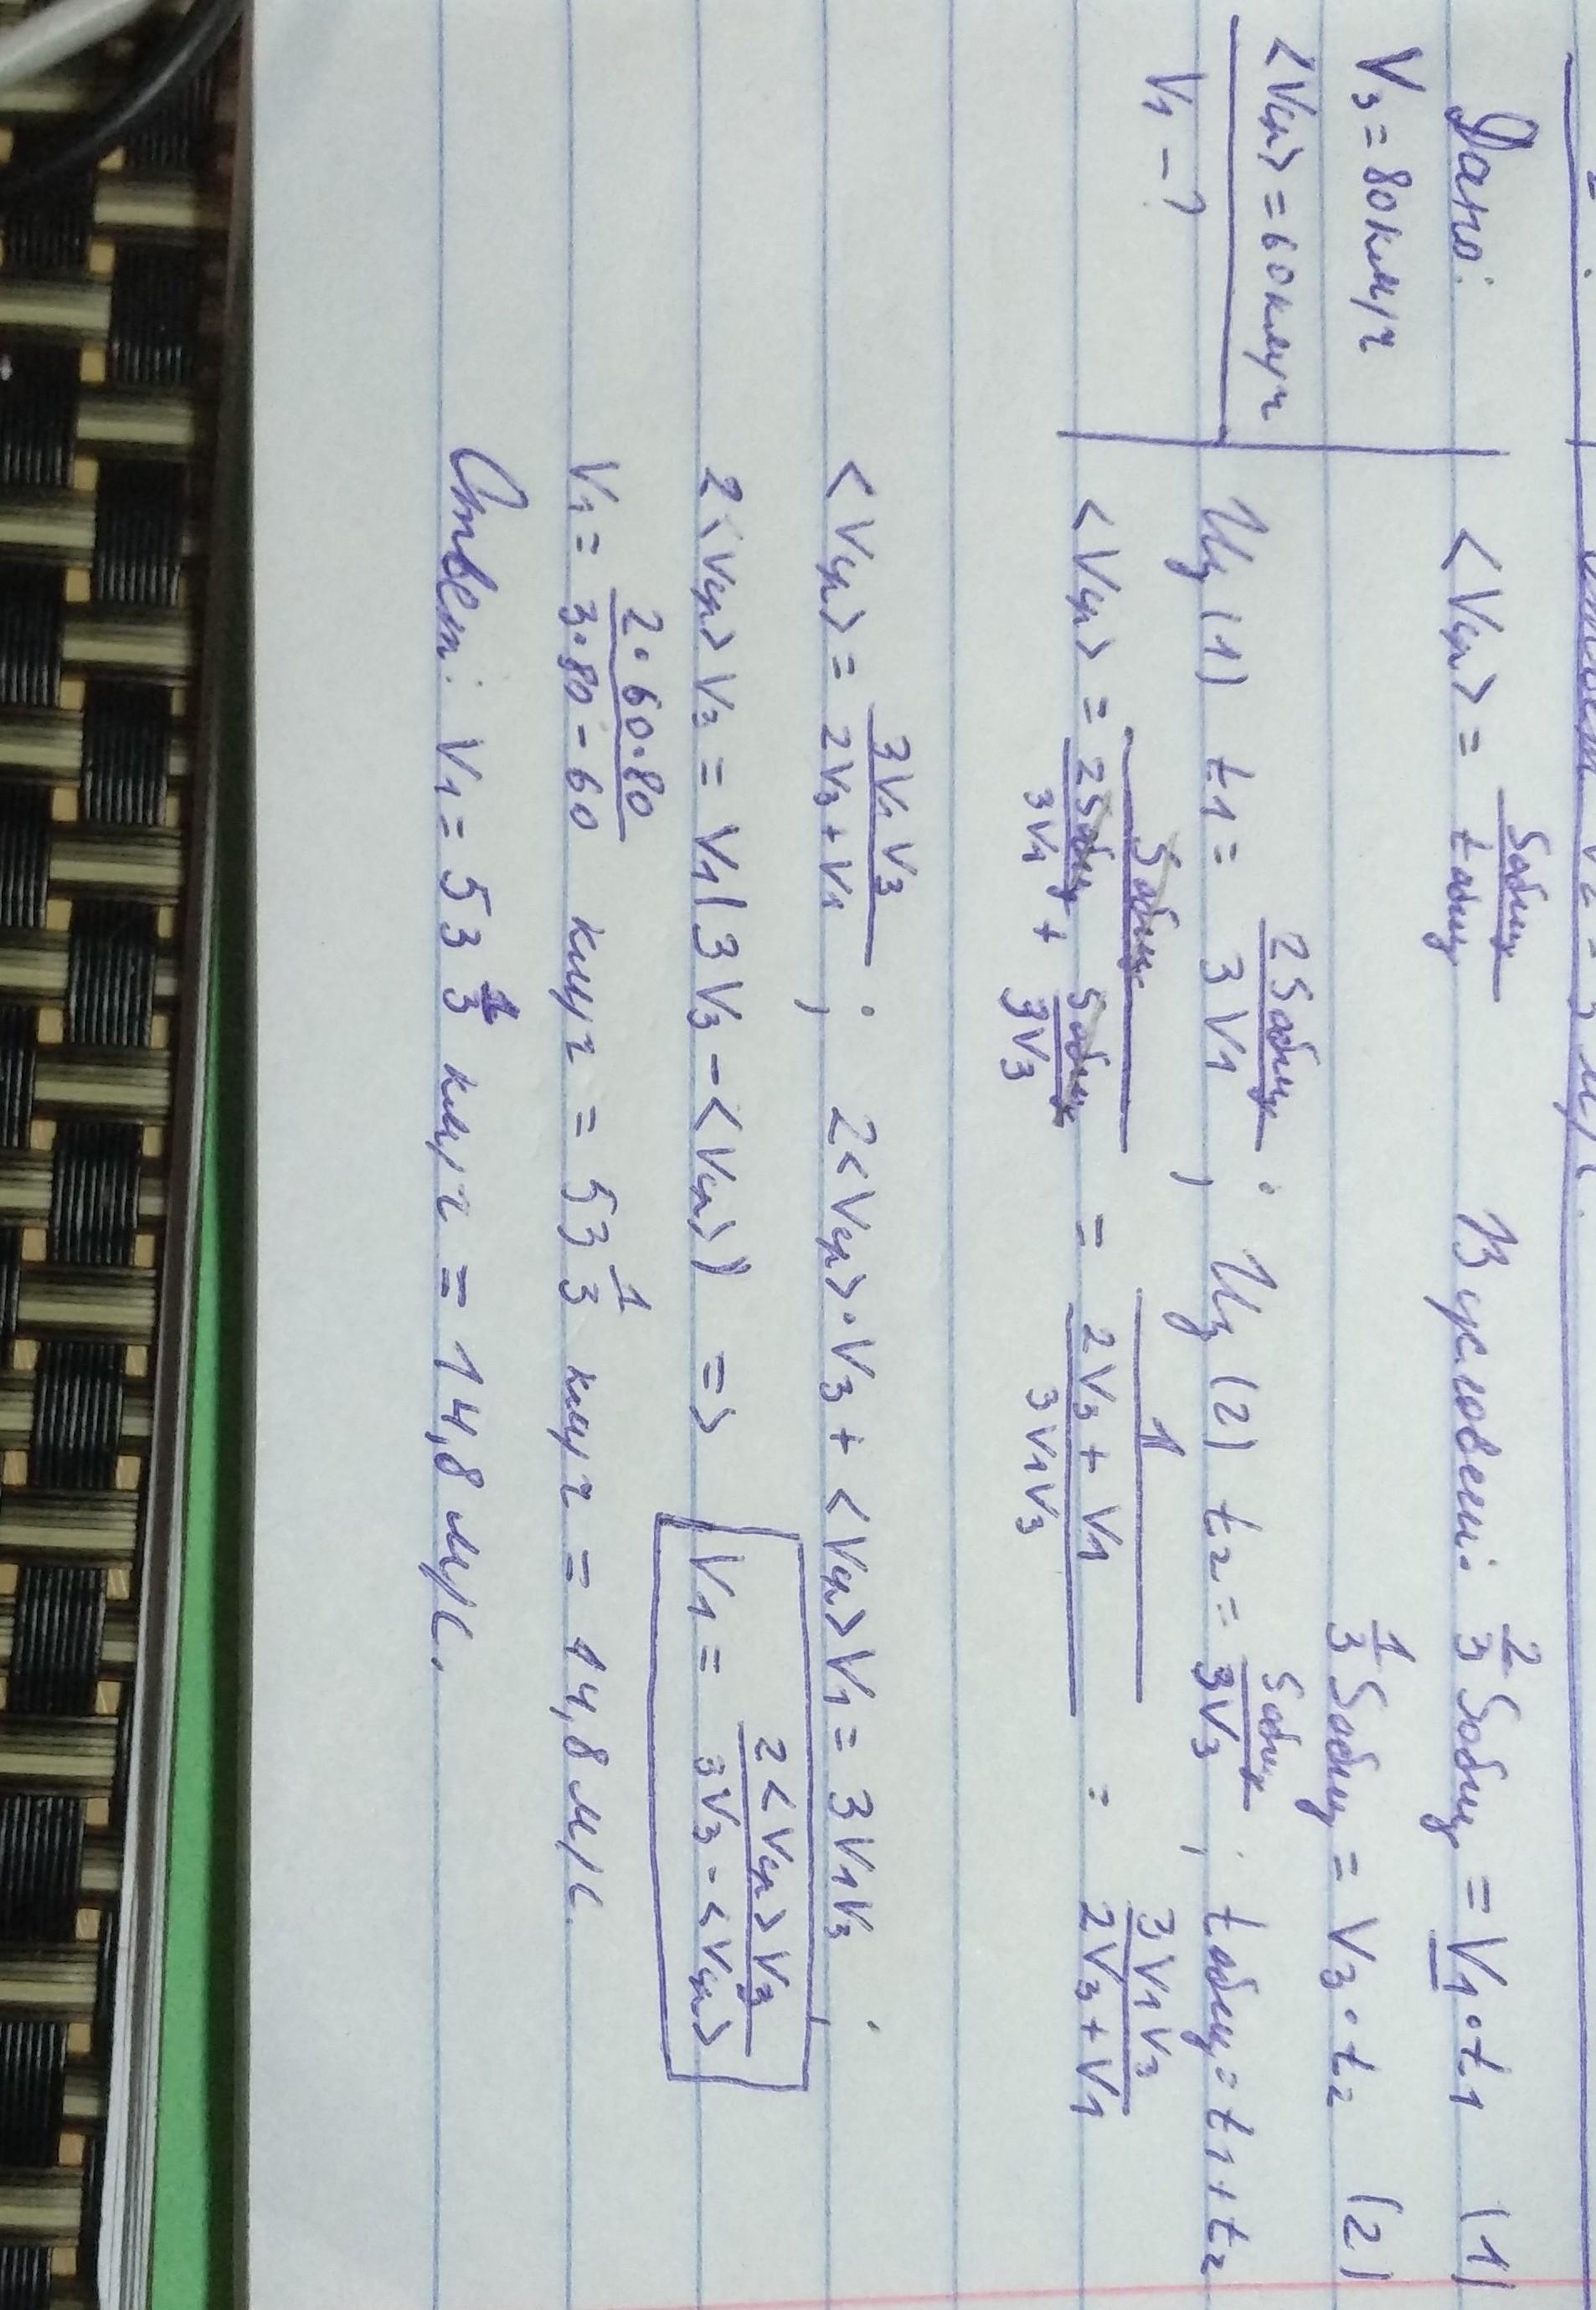 Дано:
V₃ = 80 км/ч
<Vср> = 60 км/ч
V₁ - ?
<Vср> = Sобщ/tобщ В условии: 2/3 Sобщ = V₁·t₁ (1)
1/3 Sобщ = V₃·t₂ (2)
Из (1) t₁ = 2Sобщ/3V₁ ; Из (2) t₂ = Sобщ/3V₃ ; tобщ = t₁ + t₂
<Vср> = Sобщ/(2Sобщ/3V₁ + Sобщ/3V₃) = 1/((2V₃ + V₁)/3V₁V₃) = 3V₁V₃/(2V₃ + V₁)
<Vср> = 3V₁V₃/(2V₃ + V₁) ; 2<Vср>·V₃ + <Vср>V₁ = 3V₁V₃
2<Vср>V₃ = V₁(3V₃ - <Vср>) => V₁ = 2<Vср>V₃/(3V₃ - <Vср>)
V₁ = 2·60·80/(3·80 - 60) км/ч = 53 1/3 км/ч = 14,8 м/с.
Ответ: V₁ = 53 1/3 км/ч = 14,8 м/с.